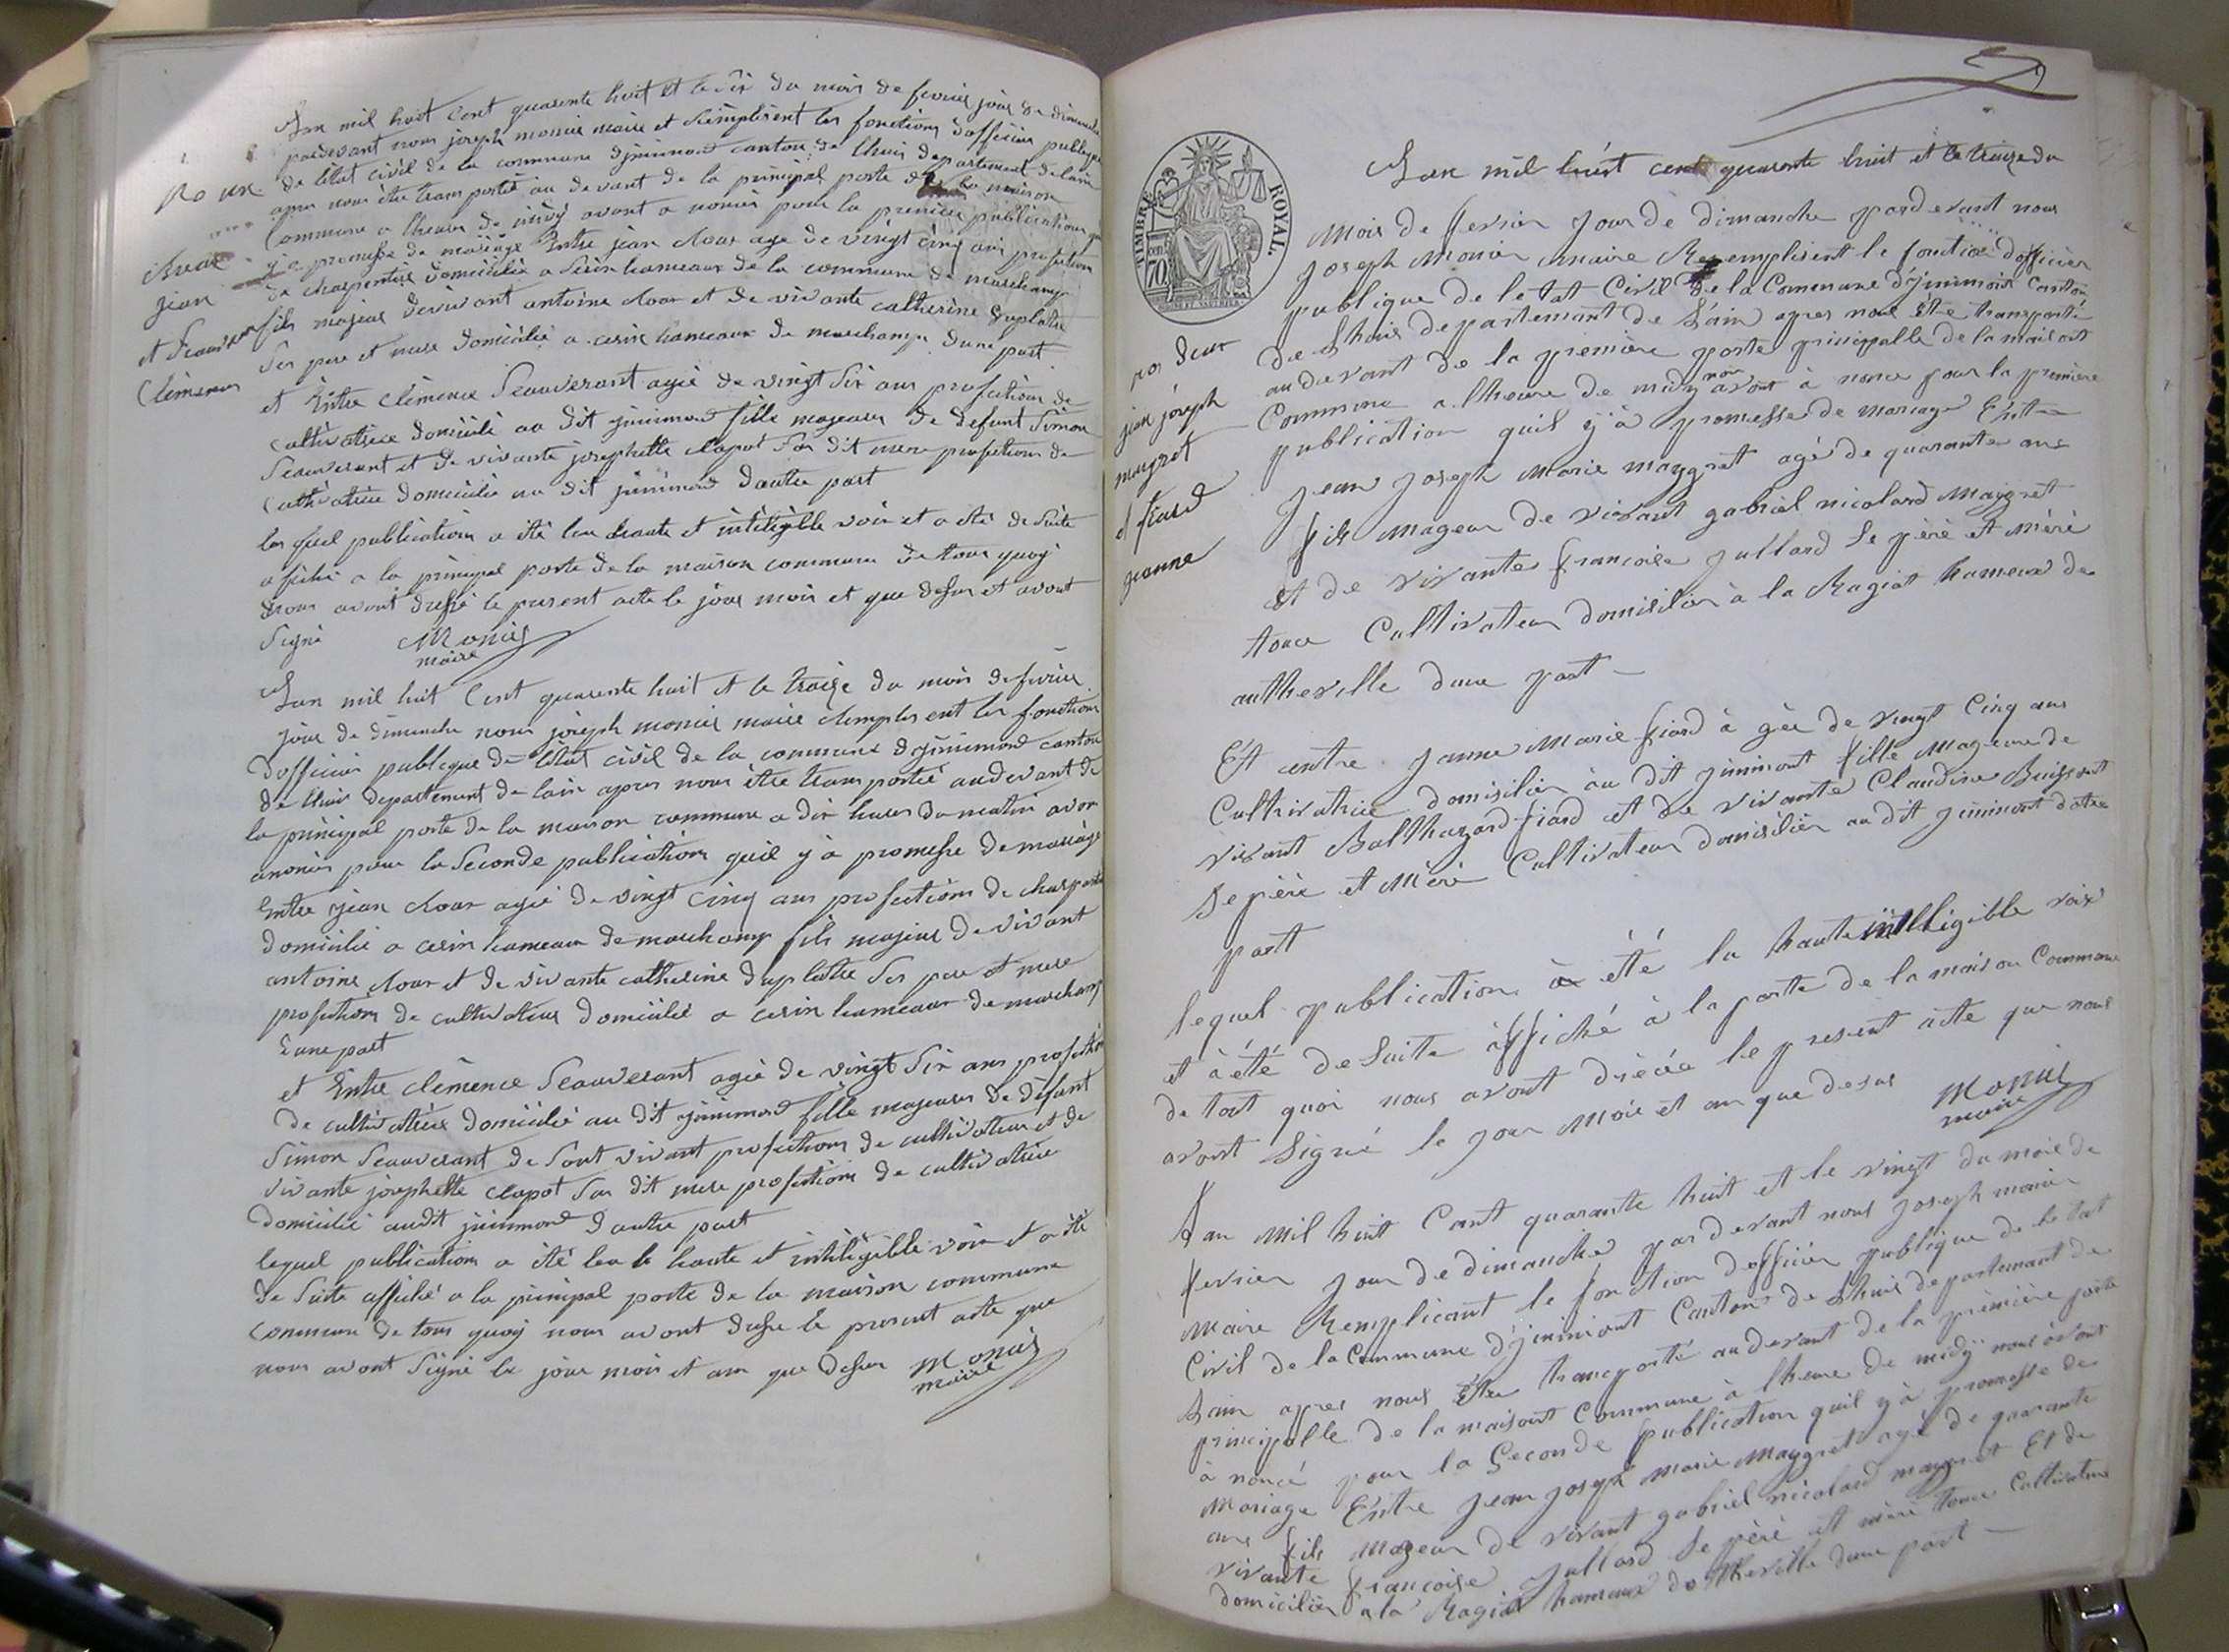 Lan mil huit Cent quarente huit et le Six du mois de fevrier jour de dimanche
pardevant nous joseph monier maire et Remplisent les fonctions dofficier publique
de letat civil de la commune djinimond canton de lhuis departement de lain
apres nous être transportée au devant de la principal porte de la maison
Commune a lheure de midÿ avont a noncer pour la premiere publications que
y a promesse de mariage Entre jean doux age de vingt cinq ans profection
de charpentier domicilié a Serin hameaux de la commune de marchamp
fils majeur devivant antoine doux et de vivante catherine duplatre
Ses pere et mere domicilié a cerin hameaux de marchamp dune part
No un
jean
et Seauverant
Clémence
et Entre clémence Seauverant agée de vingt Six ans profections de
cultivatrice domicilié au dit jinimond fille majeure de defunt Simon
Seauverant et de vivante josephette clapot Sa dit mere profections de
cultivatrice domicilié au dit jinimond dautre part
les quel publications a été lu haute et intéligible voix et a été de Suite
afiché a la principal porte de la maison commune de tous quoÿ
nous avont dressé le present acte le jour mois et que desus et avont
Signé Monier
maire
Lan mil huit Cent quarente huit et le traize du mois de fevrier
jour de dimanche nous joseph monier maire Remplisent les fonctions
dofficier publique de létat civil de la commune djinimond canton
de lhuis departement de lain apres nous être transportée audevant de
la principal porte de la maison commune a dix heures du matin avon
anoncer pour la Seconde publications quil y a promesse de mariage
Entre jean doux agée de vingt cinq ans profections de charpentie
domicilié a cerin hameaux de marchamp fils majeur de vivant
antoine doux et de vivante catherine duplatre Ses pere et mere
profections de cultivateur domicilié a cerin hameaux de marchamp
dune part
et Entre clémence Seauverant agée de vingt Six ans profections
de cultivatrice domicilié au dit jinimond fille majeure de défunt
Simon Seauverant de Sont vivant profections de cultivateur et de
vivante josephette clapot Sa dit mere profections de cultivatrice
domicilié audit jinimond dautre part
lequel publications a été lu haute et intéligible voix et a été
de Suite affiché a la principal porte de la maison commune
Commune de tous quoÿ nous avont dresse le present acte que
nous avont Signé le jour mois et an que desus Monier
maire
TIMBRE ROYAL
70
Lan mil huist cent quarente huit et le traize du
Mois de fevrier Jour de dimanche pardevant nous
Joseph Monier Maire Remplisent le fonction dofficier
publique de letat Civil de la Commune d'Jinimont Canton
de Lhuis departemant de Lain apres nous Être transporté
au devant de la première porte principalle de la maisont
Commune a lheure de midy nou avont à noncé pour la première
publication quil y à promesse de Mariage Entre
Jean Joseph Marie Maygret agé de quarante ans
fils Mageur de vivant gabriel nicolard Maygret
Et de vivante francoise Jullard Se père et mère
tous Cultivateur domicilier à la Ragiat hameux de
autheville dune part
no deux
jean joseph
maygret
et fiard
jeanne
Et entre Janne Marie fiard à gée de vingt Cinq ans
Cultivatrice domicilier àu dit Jinimont fille Mageure de
vivant Balthazard fiard et de vivante Claudine Buissont
Se père et Mère Cultivateur domicilier au dit Jinimont dotre
part
lequel publication à été lu haute intelligible voix
et à été de Suite àffiché à la porte de la maison Commune
de tout quoi nous avont drécée le present àcte que nous
avont Signé le Jour Mois et an que desus Monier
maire
Lan Mil huit Cant quarante huit et le vingt du mois de
fevrier Jour de dimanche pardevant nous Joseph monier
Maire Remplicant le fonction dofficier publique de letat
Civil de la Commune d'Jinimont Canton de Lhuis departemant de
Lain apres nous Être transporté audevant de la première porte
principalle de la maisont Commune à lheure de midÿ nous àvont
à noncé pour la Seconde publication quil y à promesse de
Mariage Entre Jean Joseph Marie Maygret agé de quarante
ans fils Mageur de vivant gabriel nicolard maygret Et de
vivante francoise Jullard Se père et mère tous Cultivateur
domicilier a la Ragiat hameux dotheville dune part